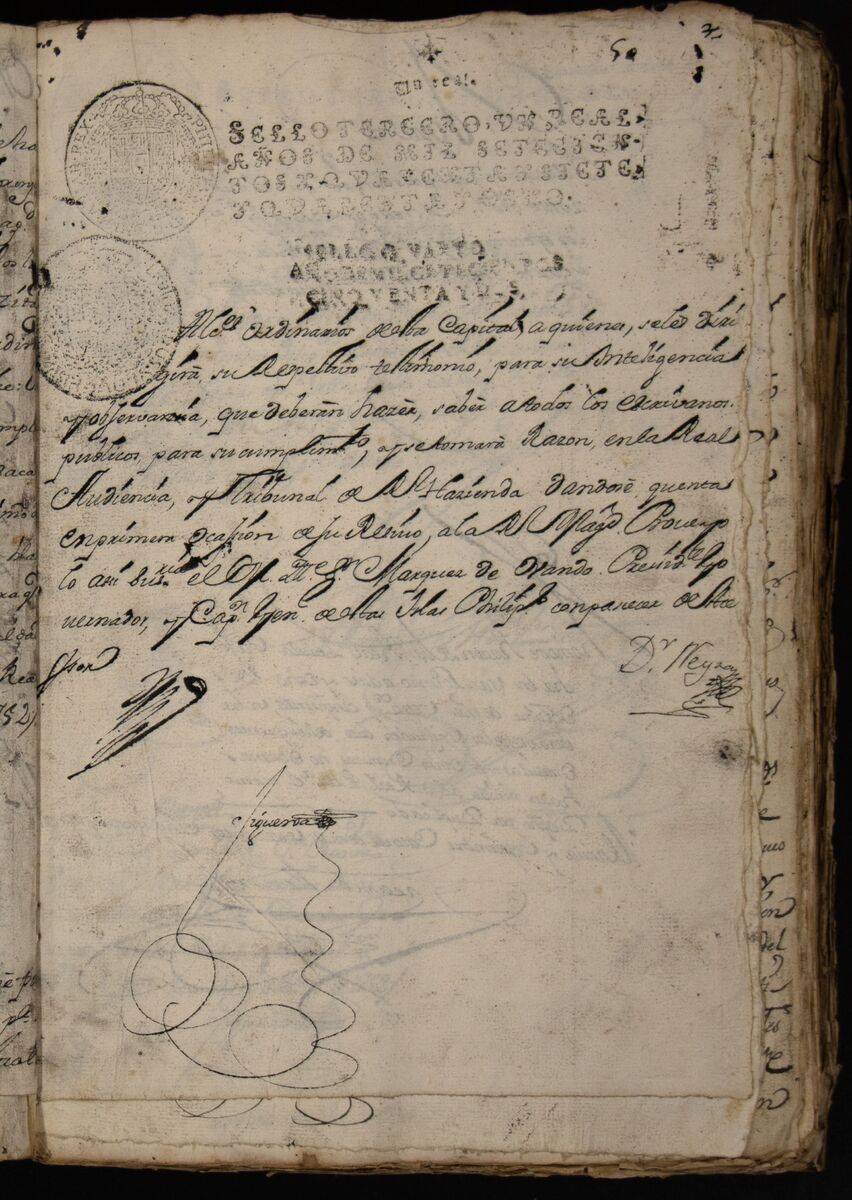 50
Un real.
SELLO TERCERO, UN REAL,
AÑOS DE MIL SETECIEN-
TOS Y QUARENTA Y SIETE,
Y QUARENTA Y OCHO.
SELLO QUARTO
AÑO DE MIL SETECIENTOS
CINQUENTA Y
Al.es ordinarios de esta Capital, a quienes, seles diri
girá, su Respectivo testimonio, para su Inteligencia
y observancia, que deberán hazer, saber atodos los escrivanos
publicos, para su cumplim.to, y setomará Razon, en la Real
Audiencia, y Tribunal de R.l Hazienda dandose quenta
en primera ocasion de su Resivo, ala R.l Mag.d Proveyo
lo así el M. Ill.e S.r Marques de Ovando Presid.te Go
vernador, y Cap.n Gen. de estas Islas Philip.s con parecer de el Ase
sor
D.r Neyra
Figueroa